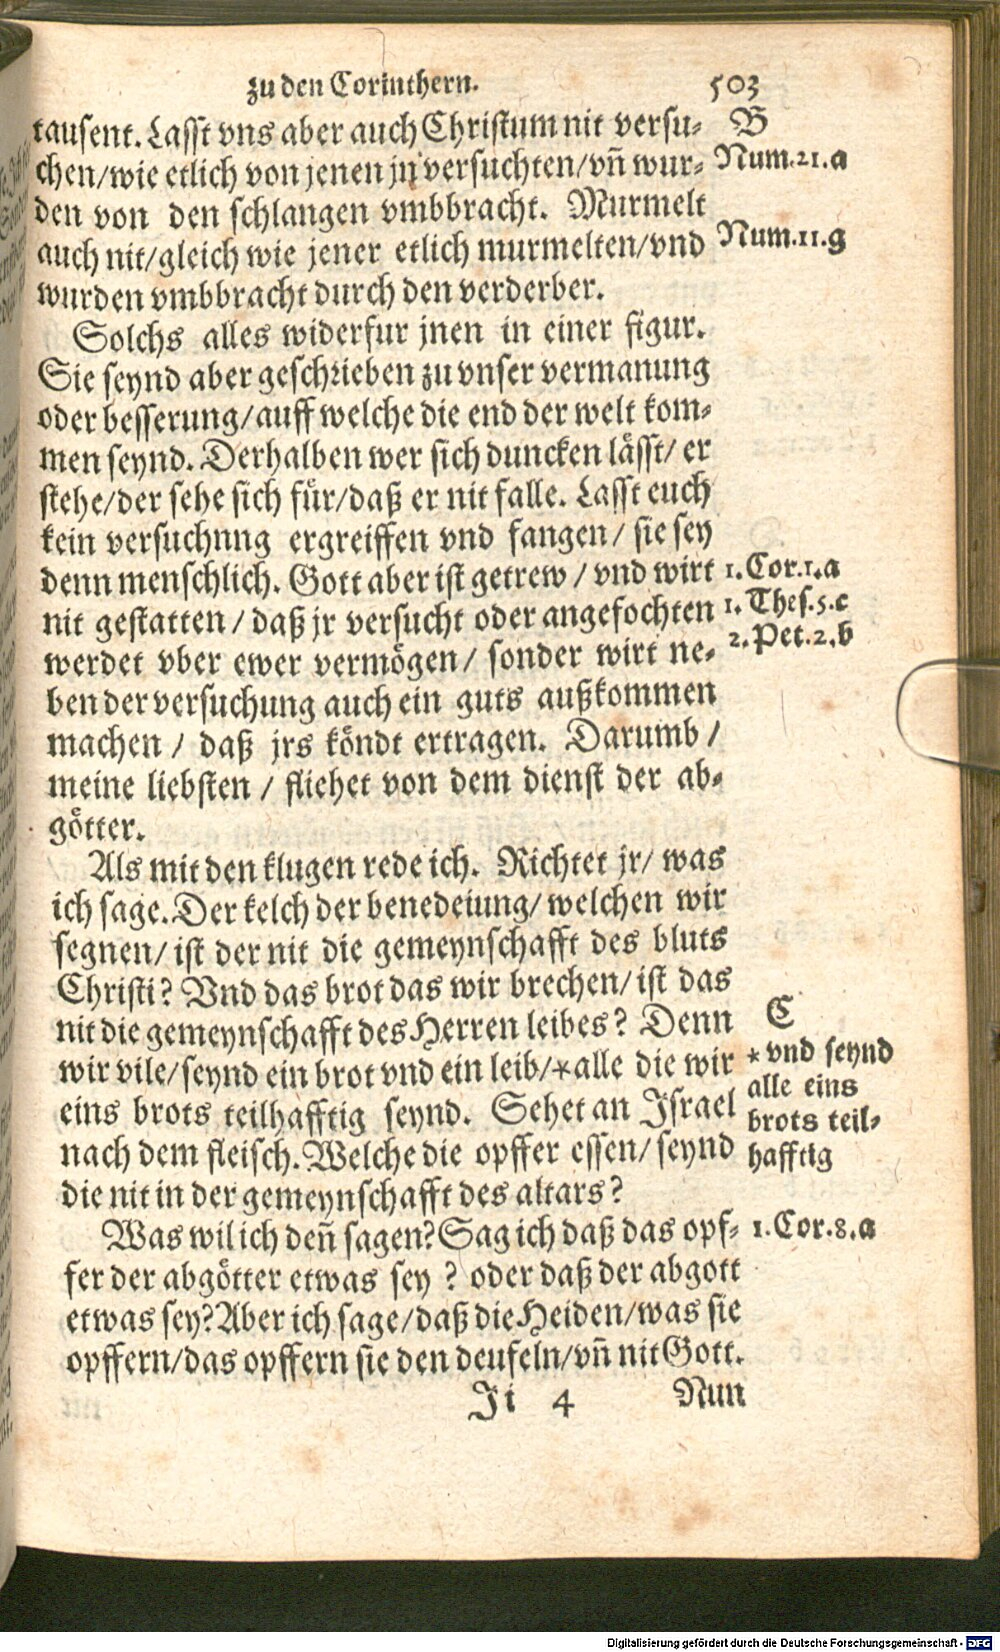 zu den Corinthern.
503
tausent. Lasst vns aber auch Christum nit versu⸗
chen/wie etlich von jenen jn versuchten/vñ wur⸗
den von den schlangen vmbbracht. Murmelt
auch nit/gleich wie jener etlich murmelten/vnd
wurden vmbbracht durch den verderber.
Solchs alles widerfur jnen in einer figur.
Sie seynd aber geschrieben zu vnser vermanung
oder besserung/auff welche die end der welt kom⸗
men seynd. Derhalben wer sich duncken lässt/ er
stehe/der sehe sich für/daß er nit falle. Lasst euch
kein versuchnng ergreiffen vnd fangen/ sie sey
denn menschlich. Gott aber ist getrew / vnd wirt
nit gestatten / daß jr versucht oder angefochten
werdet vber ewer vermögen/ sonder wirt ne⸗
ben der versuchung auch ein guts außkommen
machen / daß jrs köndt ertragen. Darumb /
meine liebsten / fliehet von dem dienst der ab⸗
götter.
Als mit den klugen rede ich. Richtet jr/ was
ich sage. Der kelch der benedeiung/ welchen wir
segnen/ ist der nit die gemeynschafft des bluts
Christi? Vnd das brot das wir brechen/ ist das
nit die gemeynschafft des Herren leibes? Denn
wir vile/seynd ein brot vnd ein leib/*alle die wir
eins brots teilhafftig seynd. Sehet an Israel
nach dem fleisch. Welche die opffer essen/ seynd
die nit in der gemeynschafft des altars?
Was wil ich deñ sagen? Sag ich daß das opf⸗
fer der abgötter etwas sey ? oder daß der abgott
etwas sey? Aber ich sage/daß die Heiden/was sie
opffern/das opffern sie den deufeln/vñ nit Gott.
Ji 4
Nun
B
Num.21.a
Num.11.g
1. Cor.1.a
1. Thes.5.c
2. Pet.2.b
C
*vnd seynd
alle eins
brots teil⸗
hafftig
1. Cor.8.a
Digitalisierung gefördert durch die Deutsche Forschungsgemeinschaft - DFG